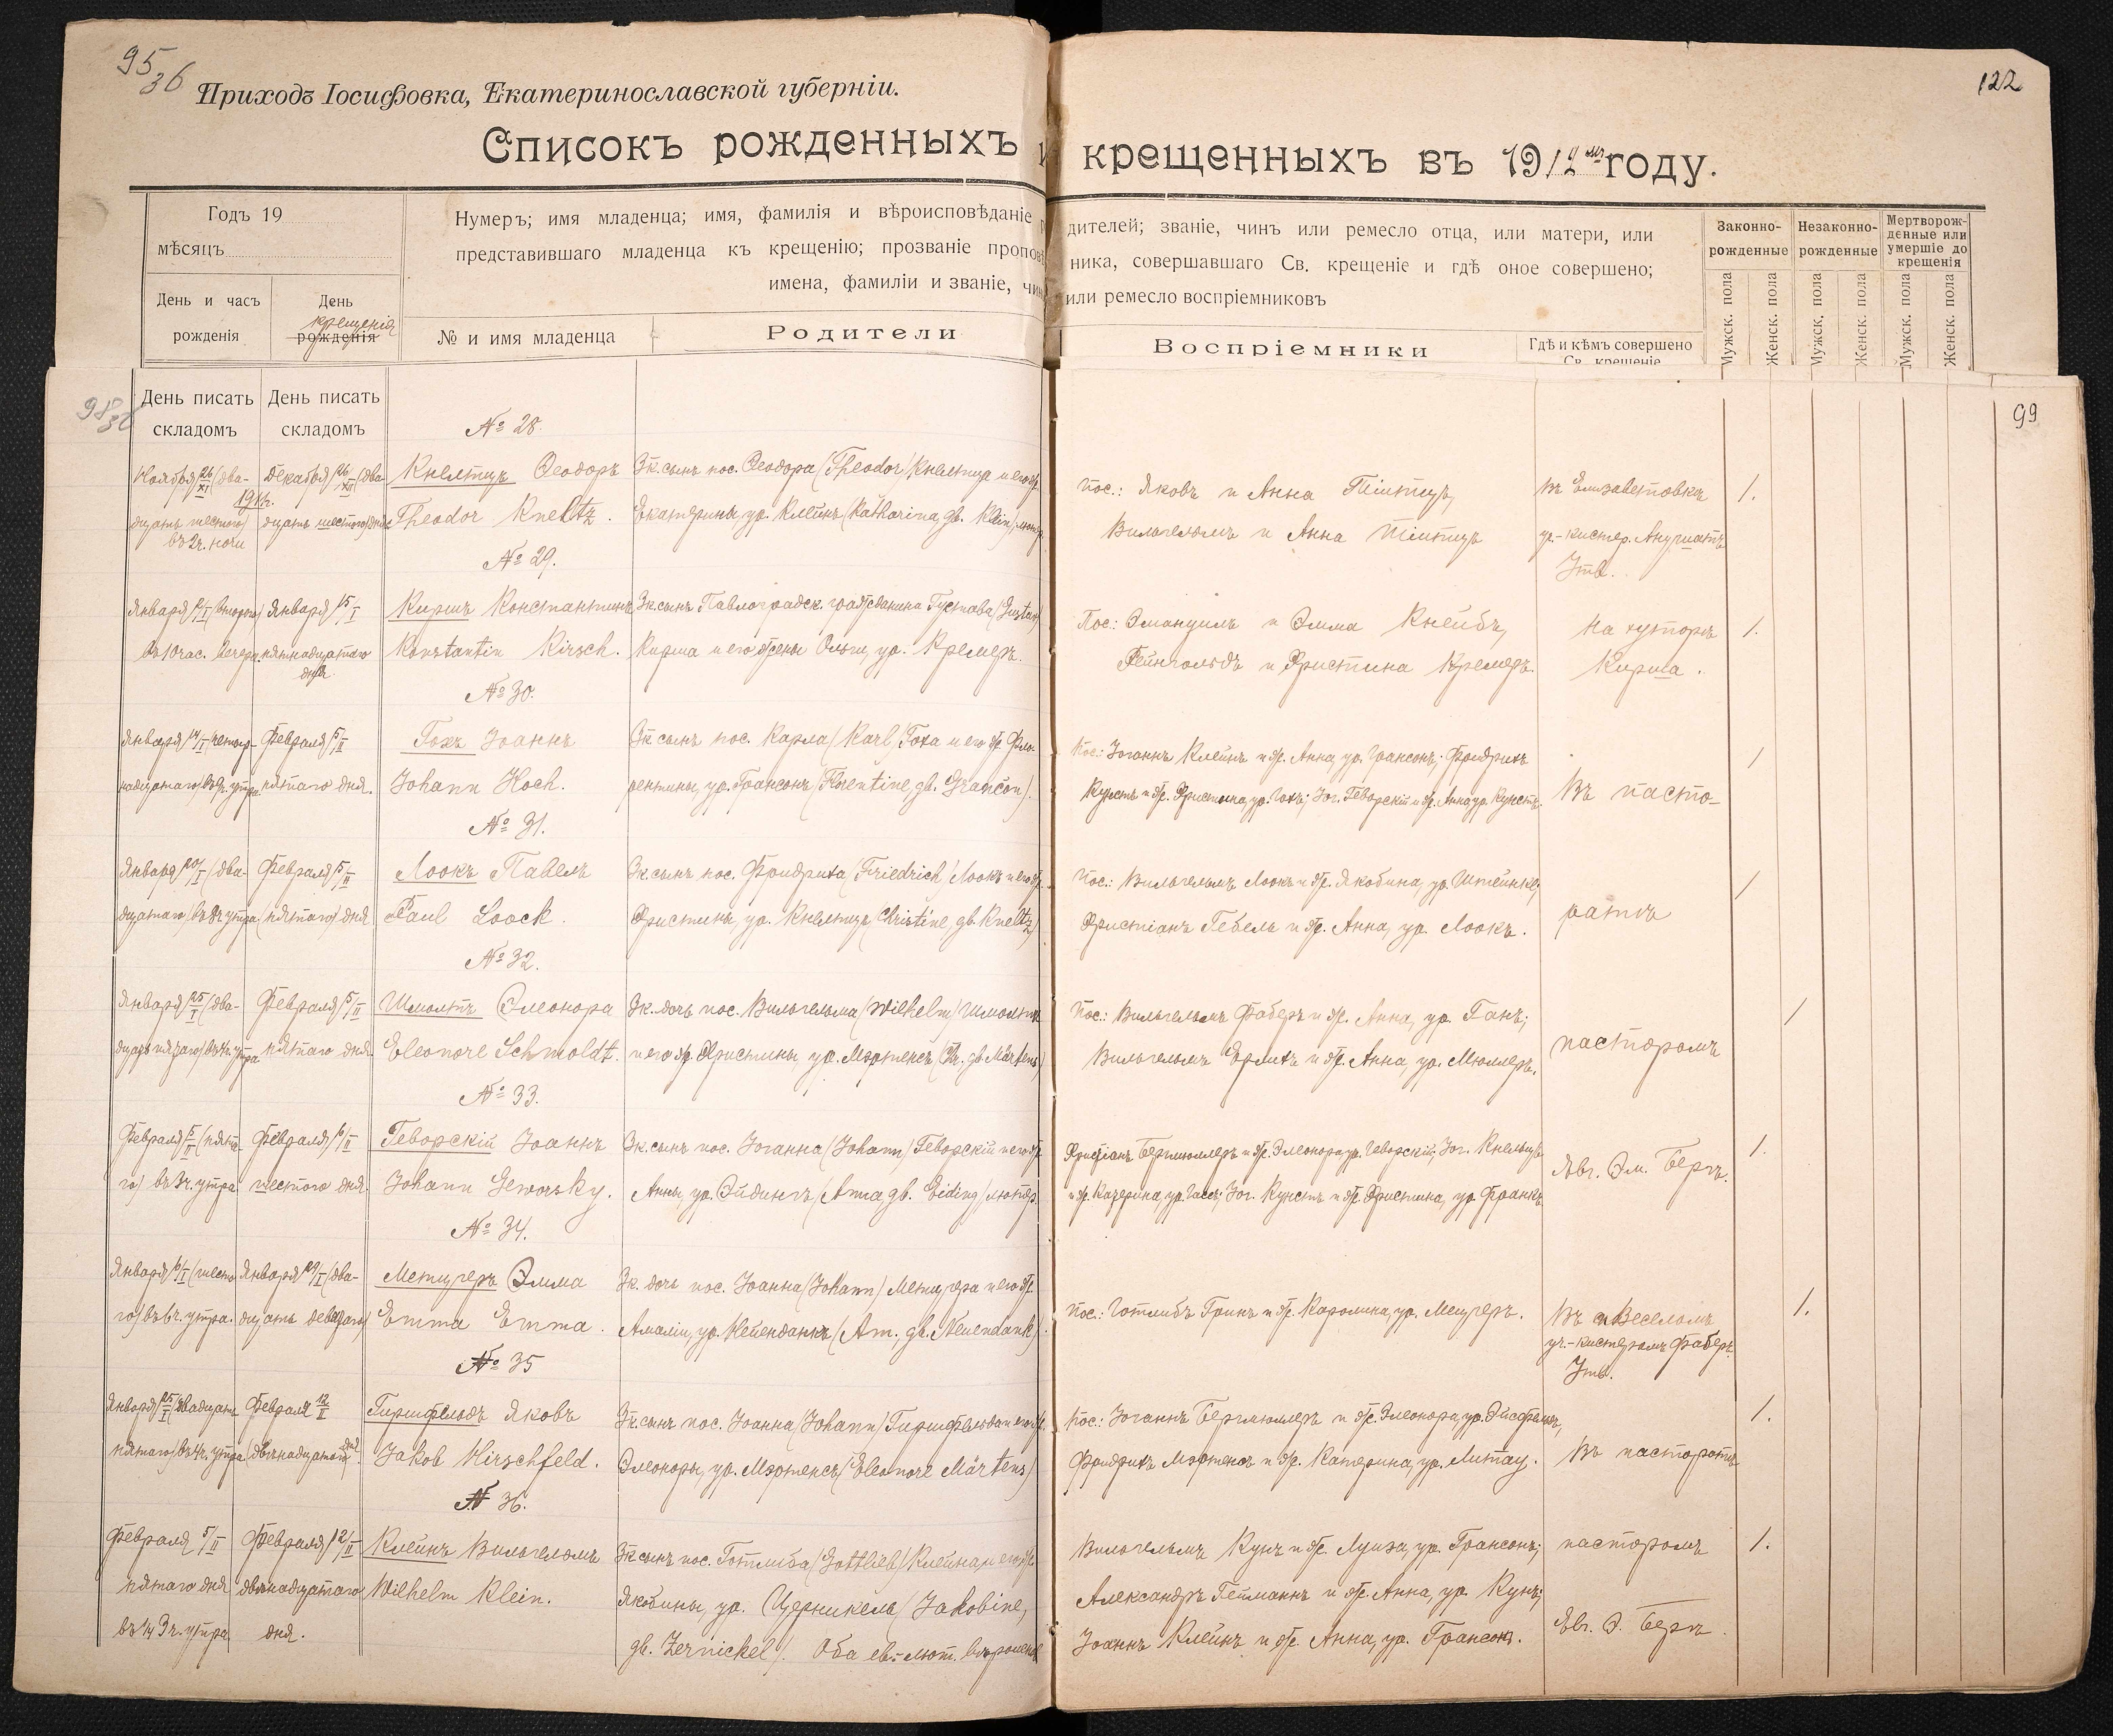 95
36
122
Приходъ Іосифовка, Екатеринославской губерніи.
Списокъ рожденныхъ и крещенныхъ въ 1912 году.
Годъ 19
мѣсяцъ
День и часъ
рожденія
День
крещенія
рожденія
Нумеръ; имя младенца; имя, фамилія и вѣроисповѣданіе
дителей; званіе, чинъ или ремесло отца, или матери, или
представившаго младенца къ крещенію; прозваніе
ника, совершавшаго Св. крещеніе и гдѣ оное совершено;
имена, фамиліи и званіе,
или ремесло воспріемниковъ
№ и имя младенца
Родители
Воспріемники
Гдѣ и кѣмъ совершено
Св. крещеніе
Законно-
рожденные
Незаконно-
рожденные
Мертворож-
денные или
умершіе до
крещенія
Мужск. пола
Женск. пола
Мужск. пола
Женск. пола
Мужск. пола
Женск. пола
99
День писать
складомъ
День писать
складомъ
№ 28
Ноября 26/XI (два-
1911 г.
дцать шестого)
въ 2 ч. ночи
Декабря 26/XII (два
дцать шестого) дня
Кнелтцъ Ѳеодоръ
Theodor Kneltz.
Зк. сынъ пос. Ѳеодора (Theodor) Кнелтца и его ж.
Екатерины, ур. Клейнъ (Katharina, gb. Klein)
Пос.: Яковъ и Анна
Вильгельмъ и Анна
Въ Елизаветовкѣ
Утв.
1.
№ 29.
Января 2/I (второго)
въ 10 час. вечера
Января 15/I
пятнадцатаго
дня
Киршъ Константинъ
Konstantin Kirsch.
Зк. сынъ Павлоградск. гражданина Густава (Gustav)
Кирша и его жены Ольги, ур. Кремеръ.
Пос.: Эмануилъ и Эмма Кнейбъ,
Рейнгольдъ и Христина Кремеръ.
На хуторѣ
Кирша.
1.
№ 30.
Января 14/I (четыр-
надцатаго)
Февраля 5/II
пятаго дня.
Гохъ Іоаннъ
Johann Hoch.
Зк. сынъ пос. Карла (Karl) Гоха и его ж. Фло-
рентины, ур. Грансонъ (Florentine, gb. Grançon).
Пос.: Іоганнъ Клейнъ и ж. Анна, ур. Грансонъ; Фридрихъ
Кунстъ и ж. Христина, ур. Гохъ; Іог. Геворскій и ж. Анна, ур. Кунстъ.
Въ пасто-
1
№ 31.
Января 20/I (два-
дцатаго) въ 8 ч. утра
Февраля 5/II
(пятаго) дня
Лоокъ Павелъ
Paul Loock.
Зк. сынъ пос. Фридриха (Friedrich) Лоокъ и его ж.
Христины, ур. Кнелтцъ (Christine, gb. Kneltz)
Пос.: Вильгельмъ Лоокъ и ж. Якобина, ур. Штейнке;
Христіанъ Гебель и ж. Анна, ур. Лоокъ.
ратѣ
1
№ 32.
Января 25/I (два-
дцать пятаго)
Февраля 5/II
пятаго дня.
Шмолтъ Элеонора
Eleonore Schmoldt.
Зк. дочь пос. Вильгельма (Wilhelm) Шмолтъ
и его ж. Христины, ур. Мэртенсъ (Chr. gb. Märtens)
Пос.: Вильгельмъ Фаберъ и ж. Анна, ур. Ганъ;
Вильгельмъ Ерлихъ и ж. Анна, ур. Мюллеръ.
пасторомъ
1
№ 33.
Февраля 5/II (пята-
го) въ 3 ч. утра
Февраля 6/II
шестого дня.
Геворскій Іоаннъ
Johann Geworsky.
Зк. сынъ пос. Іоганна (Johann) Геворскій и его ж.
Анны, ур. Эйдингъ (Anna, gb. Eiding) лютер.
Христіанъ Бергмюллеръ и ж. Элеонора, ур. Геворскій; Іог. Кнельцъ
и ж. Катерина, ур. Гассъ; Іог. Кунстъ и ж. Христина, ур. Франкъ
Явг. Эм. Бергъ.
1.
№ 34.
Января 6/I (шесто
го) въ 6 ч. утра.
Января 29/I (два-
дцать девятаго)
Метцгеръ Эмма
Emma Emma.
Зк. дочь пос. Іоанна (Johann) Метцгера и его ж.
Амаліи, ур. Нейенданкъ (Am., gb. Neuendank).
Пос.: Готлибъ Гринъ и ж. Каролина, ур. Мецгеръ.
Въ с. Веселомъ
уч.-кистеромъ Фаберъ.
Утв.
1.
№ 35
Января 25/I (двадцать
пятаго) въ 4 ч. утра
Февраля 12/II
(двѣнадцатаго) дня
Гиршфельдъ Яковъ
Jakob Hirschfeld.
Зк. сынъ пос. Іоанна (Johann) Гиршфельда и его ж.
Элеоноры, ур. Мэртенсъ (Eleonore Märtens)
Пос.: Іоганнъ Бергмюллеръ и ж. Элеонора, ур.
Фридрихъ Мэртенсъ и ж. Катерина, ур. Литау.
Въ пасторатѣ
1.
№ 36.
Февраля 5/II
пятаго дня
въ ¼ 3 ч. утра
Февраля 12/II
двѣнадцатаго
дня.
Клейнъ Вильгельмъ
Wilhelm Klein.
Зк. сынъ пос. Готлиба (Gottlieb) Клейна, и его ж.
Якобины, ур. Церникель (Jakobine,
gb. Zernickel). Оба ев.-лют.
Вильгельмъ Кунъ и ж. Луиза, ур. Грансонъ;
Александръ Гетманнъ и ж. Анна, ур. Кунъ;
Іоаннъ Клейнъ и ж. Анна, ур. Грансонъ.
пасторомъ
Явг. Э. Бергъ.
1.